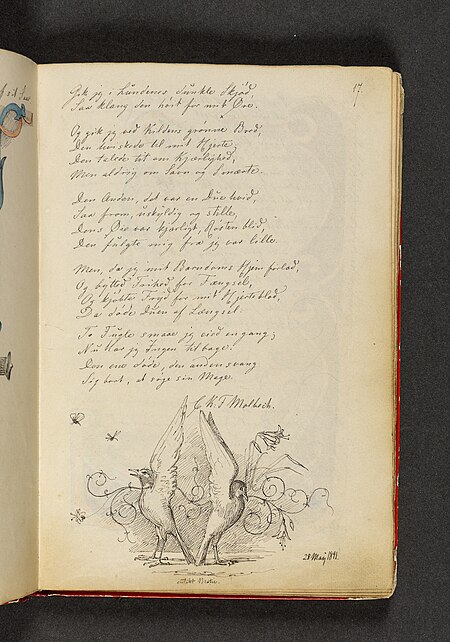 17
Gik jeg i Lundenes dunkle Skjød
Saa klang den høit for mit Øre.
Og gik jeg ved Kildens grønne Bred,
Den hviskede til mit Hjerte,
Den talede tit om Kjærlighed,
Men aldrig om Savn og Smerte.
Den Anden, det var en Due hvid,
Saa from, uskyldig og stille,
Dens Øie var kjærligt, Røsten blid,
Den fulgte mig fra jeg var lille.
Men, da jeg mit Barndoms Hjem forlod,
Og bytted Frihed for Fængsel,
Og kjøbte Tryd for mit Hjerteblod,
Da døde Duen af Længsel.
To Fugle smaae jeg eied engang;
Nu har jeg Ingen tilbage.
Den ene døde, den anden svang
Sig bort, at søge sin Mage.
C. K. F. Molbech.
28 Maj 1841.